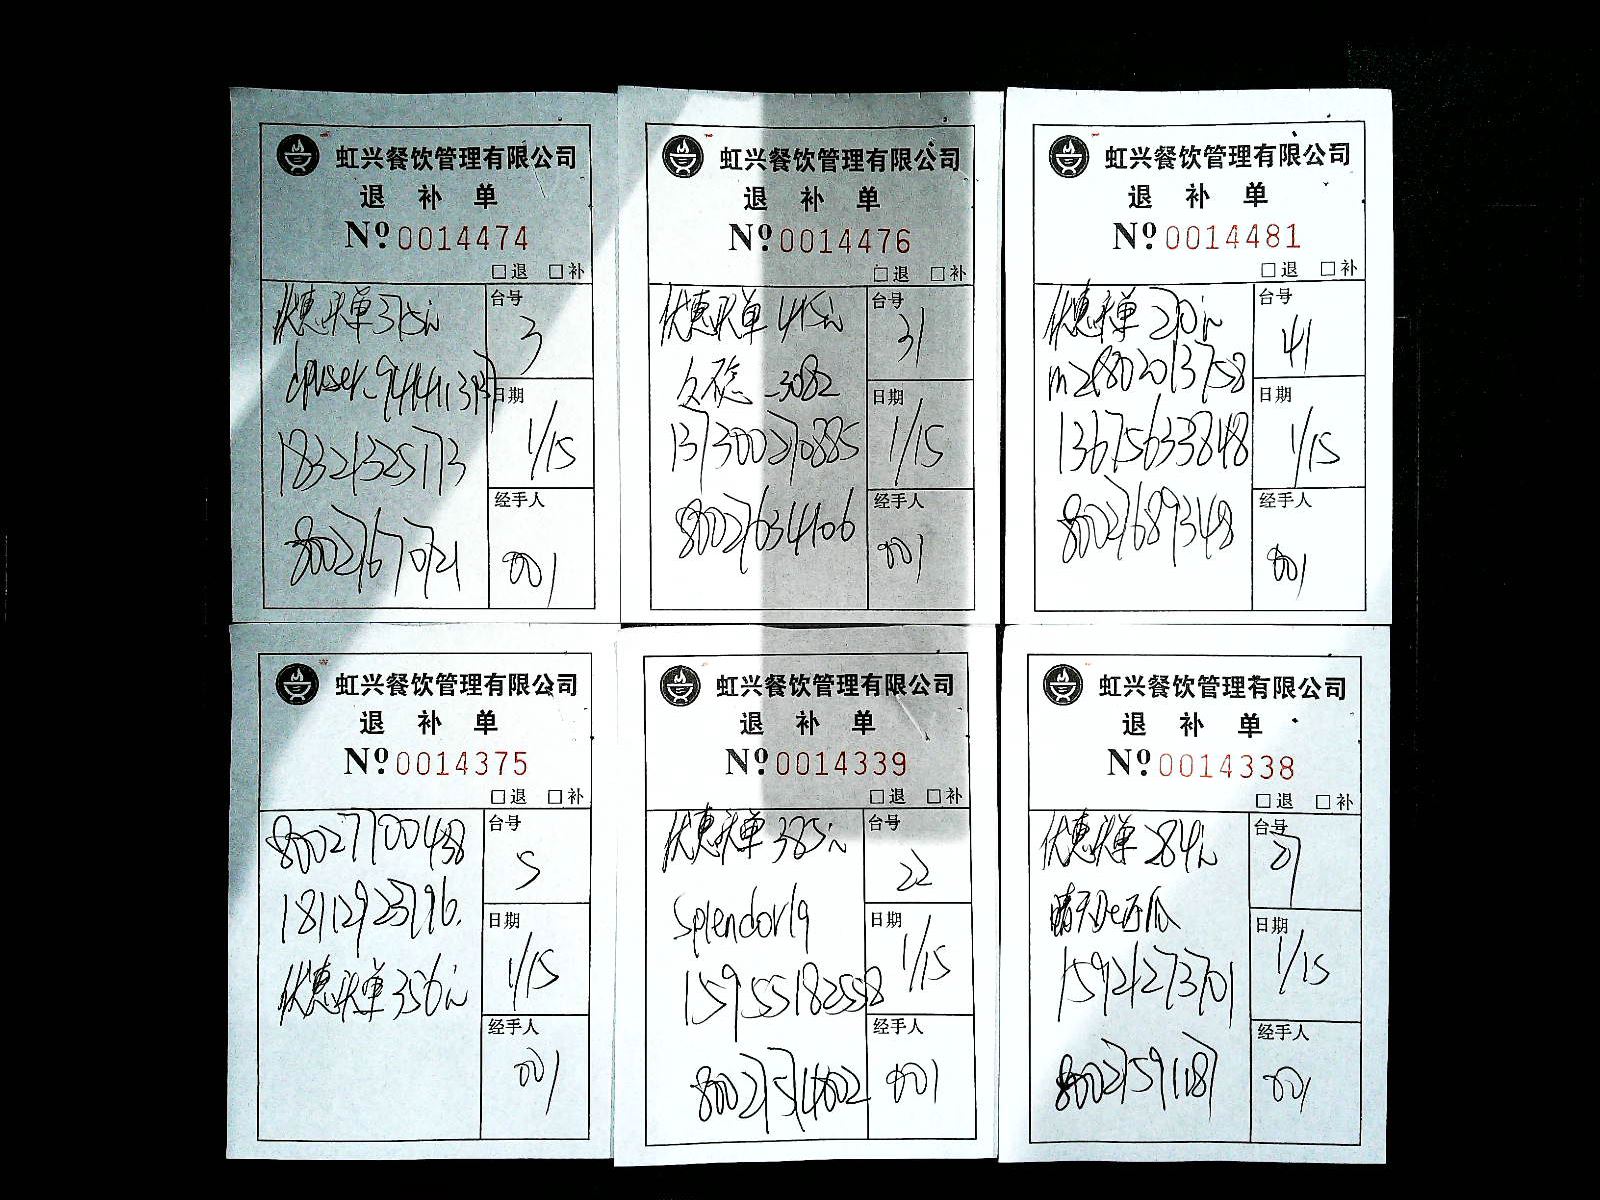 虹兴餐饮管理有限公司
退 补 单
Nº 0014474
□退 □补
优惠买单375元
台号
3
dpuser_
日期
1/15
18321325773
经手人
80027670721
001
虹兴餐饮管理有限公司
退 补 单
Nº 0014476
□退 □补
优惠买单445元
台号
31
_3082
日期
1/15
13730070885
经手人
80027634406
001
虹兴餐饮管理有限公司
退 补 单
Nº 0014481
□退 □补
优惠买单270元
台号
41
日期
13675633848
1/15
经手人
80027689348
001
虹兴餐饮管理有限公司
退 补 单
Nº 0014375
□退 □补
80027700438
台号
5
18112923796.
日期
1/15
优惠买单356元
经手人
001
虹兴餐饮管理有限公司
退 补 单
Nº 0014339
□退 □补
优惠买单385元
台号
22
splendor19
日期
1/15
15955182558
经手人
80027514802
001
虹兴餐饮管理有限公司
退 补 单
Nº 0014338
□退 □补
优惠买单284元
台号
27
晴天De西瓜
日期
15921273701
1/15
经手人
80027591187
001